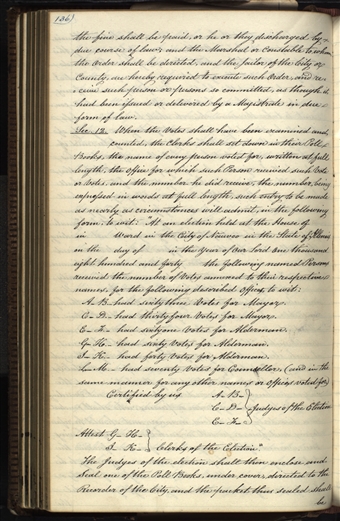 136)
the fine shall be paid, or he or they discharged by
due course of law; and the Marshal or Constable to whom
the Order shall be directed, and the Jailor of the City or
County, are hereby required to execute such Order, and re-
ceive such person or persons so committed, as though it
had been issued or delivered by a Magistrate in due
form of law.
Sec. 12. When the Votes shall have been examined and
counted, the Clerks shall set down in their Poll
Books, the name of every person voted for, written at full
length, the office for which such Person received such Vote
or Votes, and the number he did receive, the number being
expressed in words at full length, such entry to be made
as nearly as circumstances will admit, in the following
form, to wit: "At an election held at the house of
in Ward in the City of Nauvoo in the State of Illinois
on the day of in the Year of Our Lord One thousand
eight hundred and forty the following named Persons
received the number of Votes annexed to their respective
names, for the following described Offices, to wit:
A. B. had sixty three Votes for Mayor.
C- D- had thirty four Votes for Mayor.
E- F. had sixty one Votes for Alderman.
G- H. had sixty Votes for Alderman.
I- K. had forty Votes for Alderman.
L- M- had seventy Votes for Councillor, (and in the
same manner for any other names or offices voted for)
Certified by us A- B-
C- D- Judges of the Election
E- F-
Attest G- H-
I- K- Clerks of the Election"
The Judges of the election shall then enclose and
seal one of the Poll Books, under cover, directed to the
Recorder of the City, and the packet thus sealed shall
be